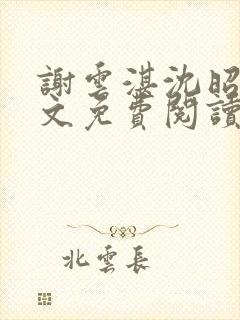 謝雲湛沈昭
文免費閱讀
北雲長